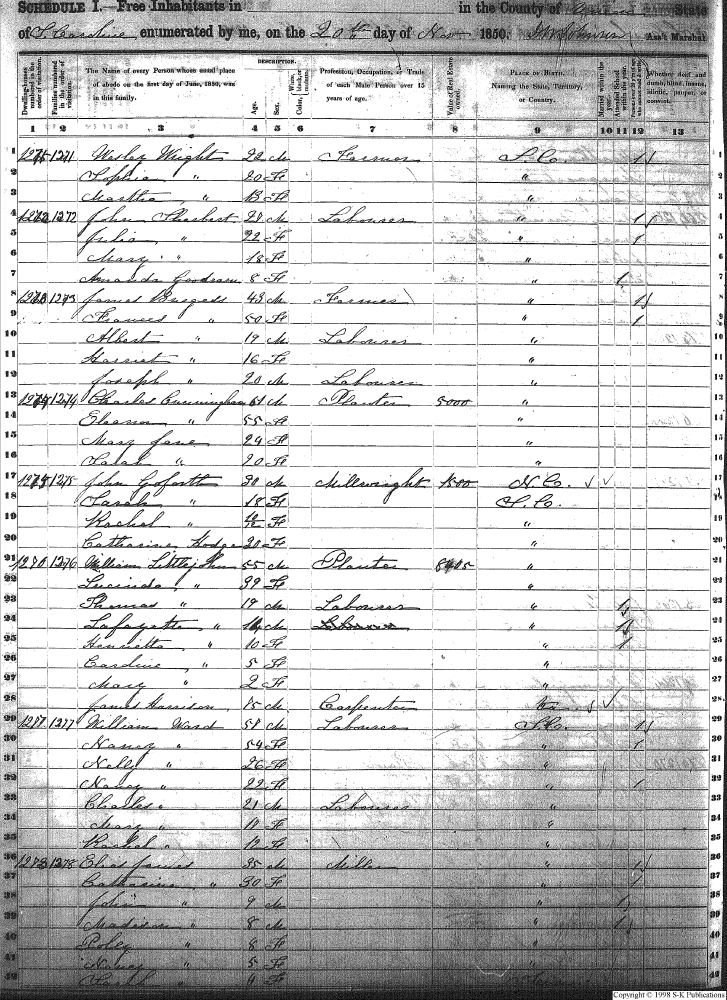 SCHEDULE I.—Free Inhabitants in in the County of State
of S. Caroline enumerated by me, on the 20th day of Nov 1850. Ass't Marshal
Dwelling-houses numbered in the order of visitation.
Families numbered in the order of visitation.
The Name of every Person whose usual place of abode on the first day of June, 1850, was in this family.
DESCRIPTION.
Age.
Sex.
Color, White, black, or mulatto.
Profession, Occupation, or Trade of each Male Person over 15 years of age.
Value of Real Estate owned.
PLACE OF BIRTH. Naming the State, Territory, or Country.
Married within the year.
Attended School within the year.
Whether deaf and dumb, blind, insane, idiotic, pauper, or convict.
1 2 3 4 5 6 7 8 9 10 11 12 13
1 1271 Wesley Wright 22 M Farmer S.C. 1 1
2 Sophia " 20 F " 2
3 Martha " 13 F " 3
4 1272 1272 John 28 M Labourer " 1 4
5 Julia " 22 F " 1 5
6 Mary " 18 F " 6
7 Amanda 8 F 1 7
8 1273 1273 James Burgess 43 M Farmer " 1 8
9 Frances " 50 F " 1 9
10 Albert " 19 M Labourer " 10
11 Harriet " 16 F " 11
12 Joseph " 20 M Labourer " 12
13 1274 1274 Charles Cunningham 61 M Planter 5000 " 13
14 Eleanor " 55 F " 14
15 Mary Jane 24 F " 15
16 Sarah " 20 F " 16
17 1275 1275 John Goforth 30 M Millwright 1500 N.C. ✓ 17
18 Sarah " 18 F S.C. 18
19 Rachel " F " 19
20 Catharine Hodge 20 F " 20
21 1276 1276 William Littlejohn 55 M Planter " 21
22 Lucinda " 39 F " 22
23 Thomas " 19 M Labourer " 1 23
24 Lafayette " M " 1 24
25 Henrietta " 10 F " 1 25
26 Caroline " 5 F " 26
27 Mary " 2 F " 27
28 James Harrison M Carpenter ✓ 28
29 1277 1277 William Ward 58 M Labourer S.C. 1 29
30 Nancy " 54 F " 1 30
31 Nelly " 26 F " 31
32 Nancy " 22 F " 1 32
33 Charles " 21 M Labourer " 33
34 Mary " F " 34
35 Rachel " 12 F " 35
36 1278 1278 Elias James 35 M Miller " 1 36
37 Catharine " 30 F " 1 37
38 John " 9 M " 1 38
39 Madison " 8 M " 1 39
40 Polly " 8 F " 40
41 Nancy " 5 F " 41
42 Sarah " 4 F 42
Copyright © 1998 S-K Publications